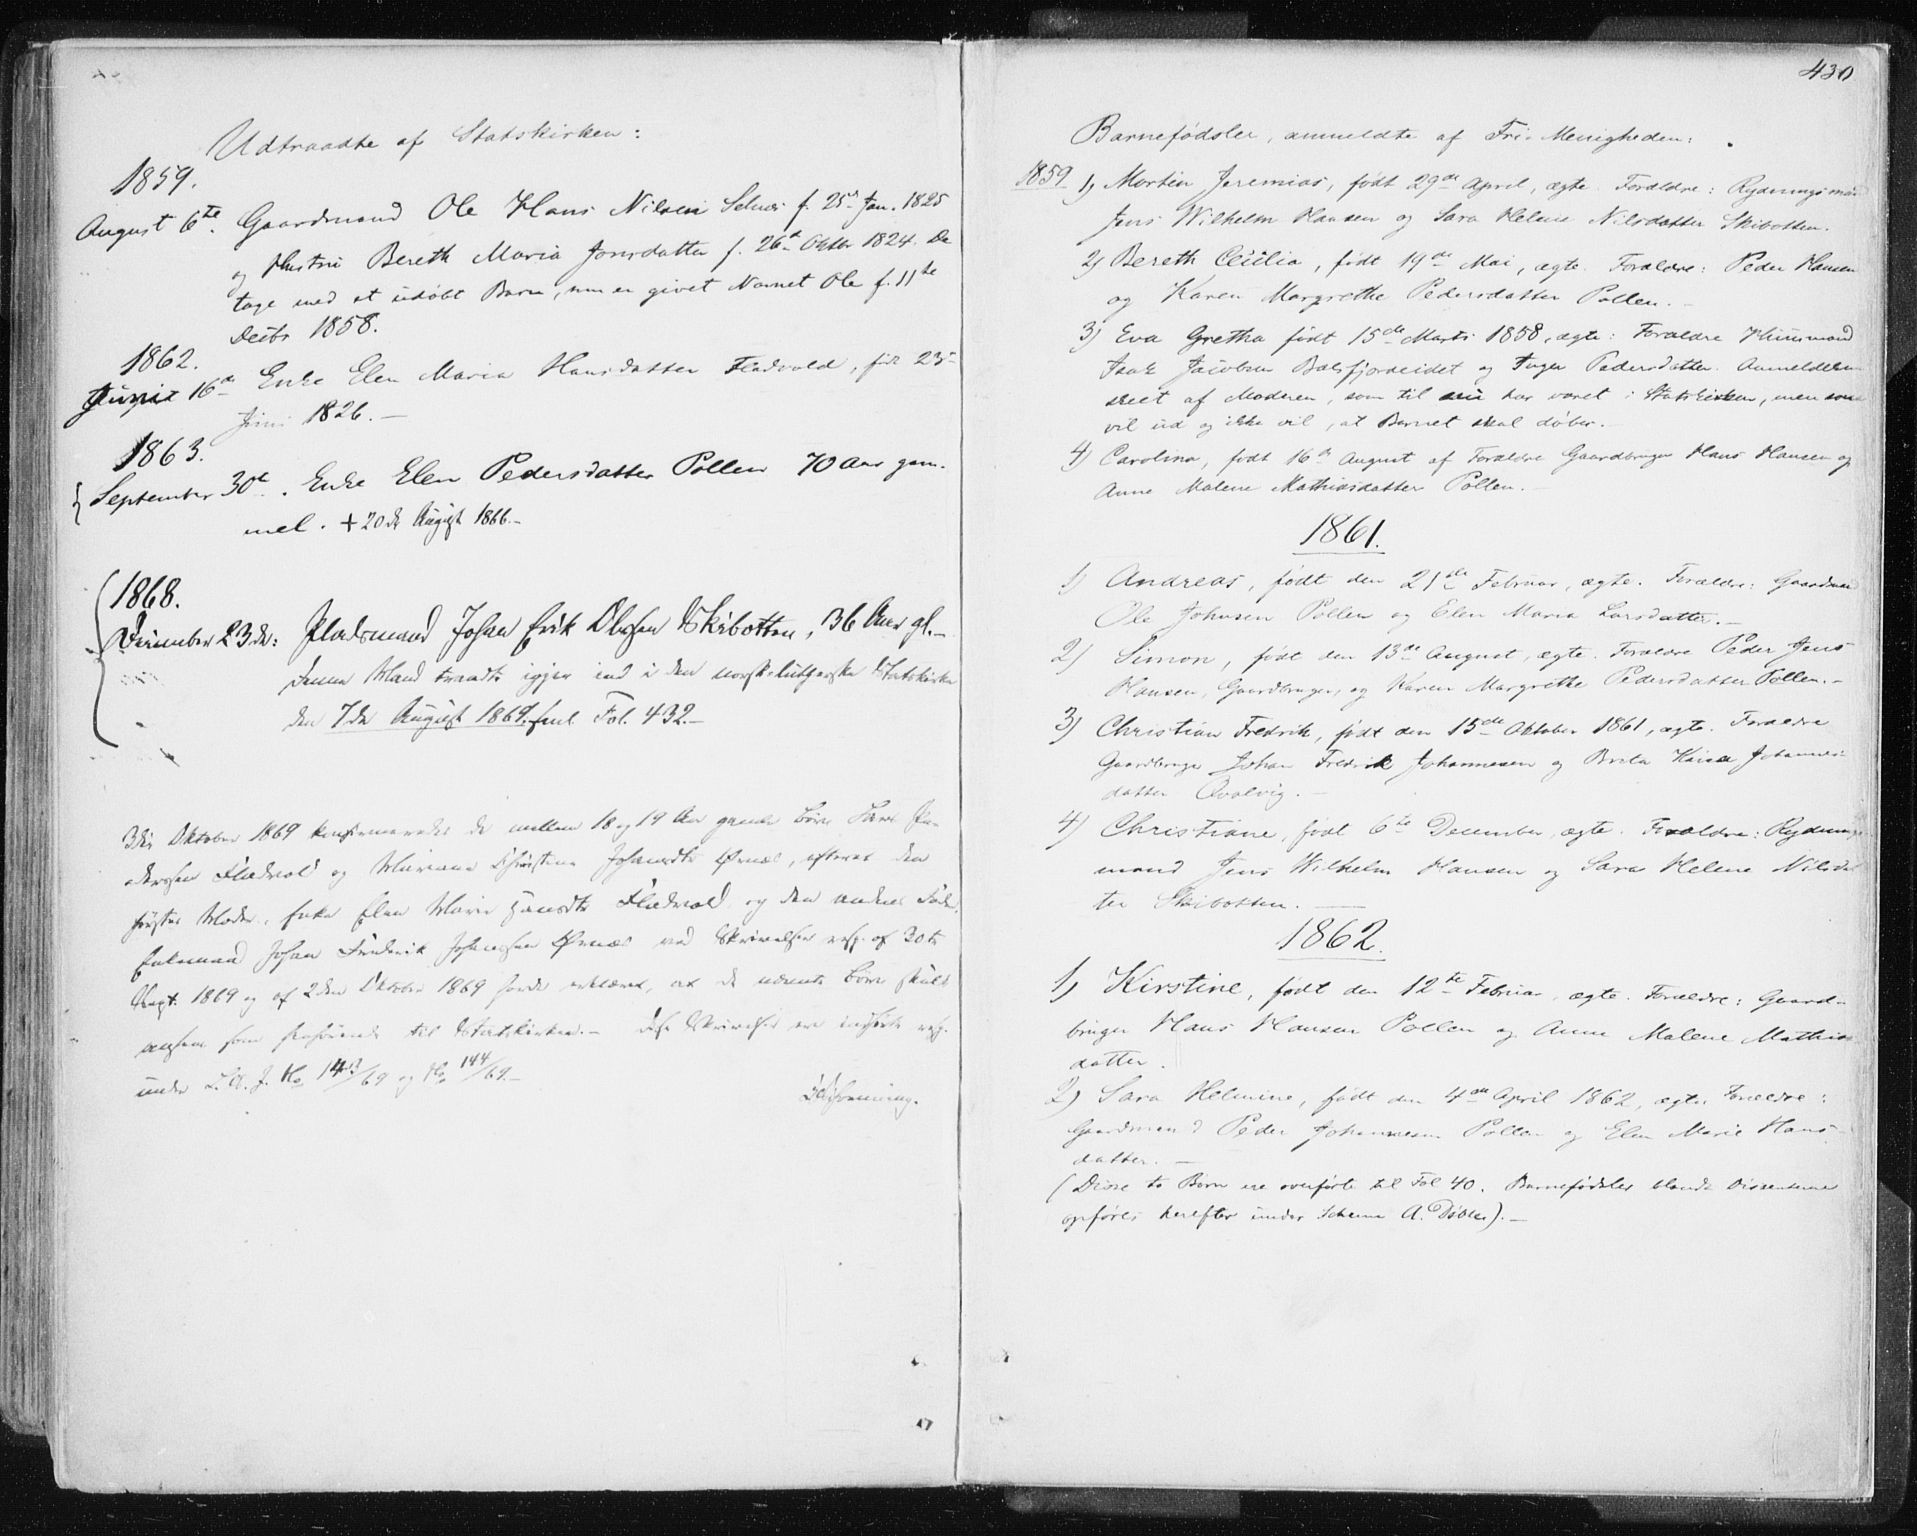 Udtraadte af Statskirken:
1859.
August 6te. Gaardmand Ole Hans Nilsen Selnæs f. 25de Jan. 1825
og Hustru Bereth Maria Jonsdatter f. 26de Oktbr 1824. De
tage med et udøbt Barn, som er givet Navnet Ole f. 11te
Decbr 1858.
1862.
16de Enke Elen Maria Hansdatter Fladvold, født 23de
Juni 1826. —
1863.
September 30te. Enke Elen Pedersdatter Pollen 70 Aar gam-
mel. + 20de August 1866.—
1868.
December 23de: Pladsmand Johan Erik Olsen Skibotten, 36 Aar gl.—
Denne Mand traadte igjen ind i den norsk-lutherske Statskirke
den 7de August 1869. Fol. 432.—
3die Oktober 1869 konfirmeredes de mellem 18 og 19 Aar gamle Børn
Fladvold og Mariane Christine Johansdtr Ørnæs, efterat den
førstes Moder, Enke Elen Marie Hansdtr Fladvold og den andens Fader,
Enkemand Johan Frederik Johannesen Ørnæs ved Skrivelser resp. af 30te
Sept. 1869 og af 2den Oktober 1869 havde erklæret, at de nævnte Børn skulde
ansees som henhørende til Statskirken.— Disse Skrivelser ere indførte resp.
under No 143/69 og No 144/69.—
430
Barnefødsler, anmeldte af Fri-Menigheden:
1859 1) Morten Jeremias, født 29de April, ægte. Forældre: Rydningsmand
Jens Wilhelm Hansen og Sara Helene Nilsdatter Skibotten.
2) Bereth Cecilia, født 19de Mai, ægte. Forældre: Peder Hansen
og Karen Margrethe Pedersdatter Pollen. —
3) Eva Gretha født 15de Marts 1858, ægte: Forældre Huusmand
Isak Jacobsen Balsfjordeidet og Inger Pedersdatter. Anmeldelsen
skeet af Moderen, som til nu har været i Statskirken, men som
vil ud og ikke vil, at Barnet skal døbes. —
4) Carolina, født 16de August af Forældre Gaardbruger Hans Hansen og
Anne Malene Mathiasdatter Pollen. —
1861.
1) Andreas, født den 21de Februar, ægte. Forældre: Gaardmand
Ole Johnsen Pollen og Elen Maria Larsdatter. —
2) Simon, født den 13de August, ægte. Forældre Peder Jens
Hansen, Gaardbruger, og Karen Margrethe Pedersdatter Pollen. —
3) Christian Fredrik, født den 15de Oktober 1861, ægte. Forældre
Gaardbruger Johan Fredrik Johannesen og Brita Kaisa Johannes-
datter Qvalvig. —
4) Christiane, født 6te December, ægte. Forældre: Rydnings-
mand Jens Wilhelm Hansen og Sara Helene Nilsdat
ter Skibotten. —
1862.
1) Kirstine, født den 12te Februar, ægte. Forældre: Gaard-
bruger Hans Hansen Pollen og Anne Malene Mathias
datter.
2) Sara Helmine, født den 4de April 1862, ægte. Forældre:
Gaardmand Peder Johannesen Pollen og Elen Marie Hans-
datter. —
(Disse to Børn ere overførte til Fol 40. Barnefødsler blandt Dissenterne
opføres herefter under Schema A. Døbte). —